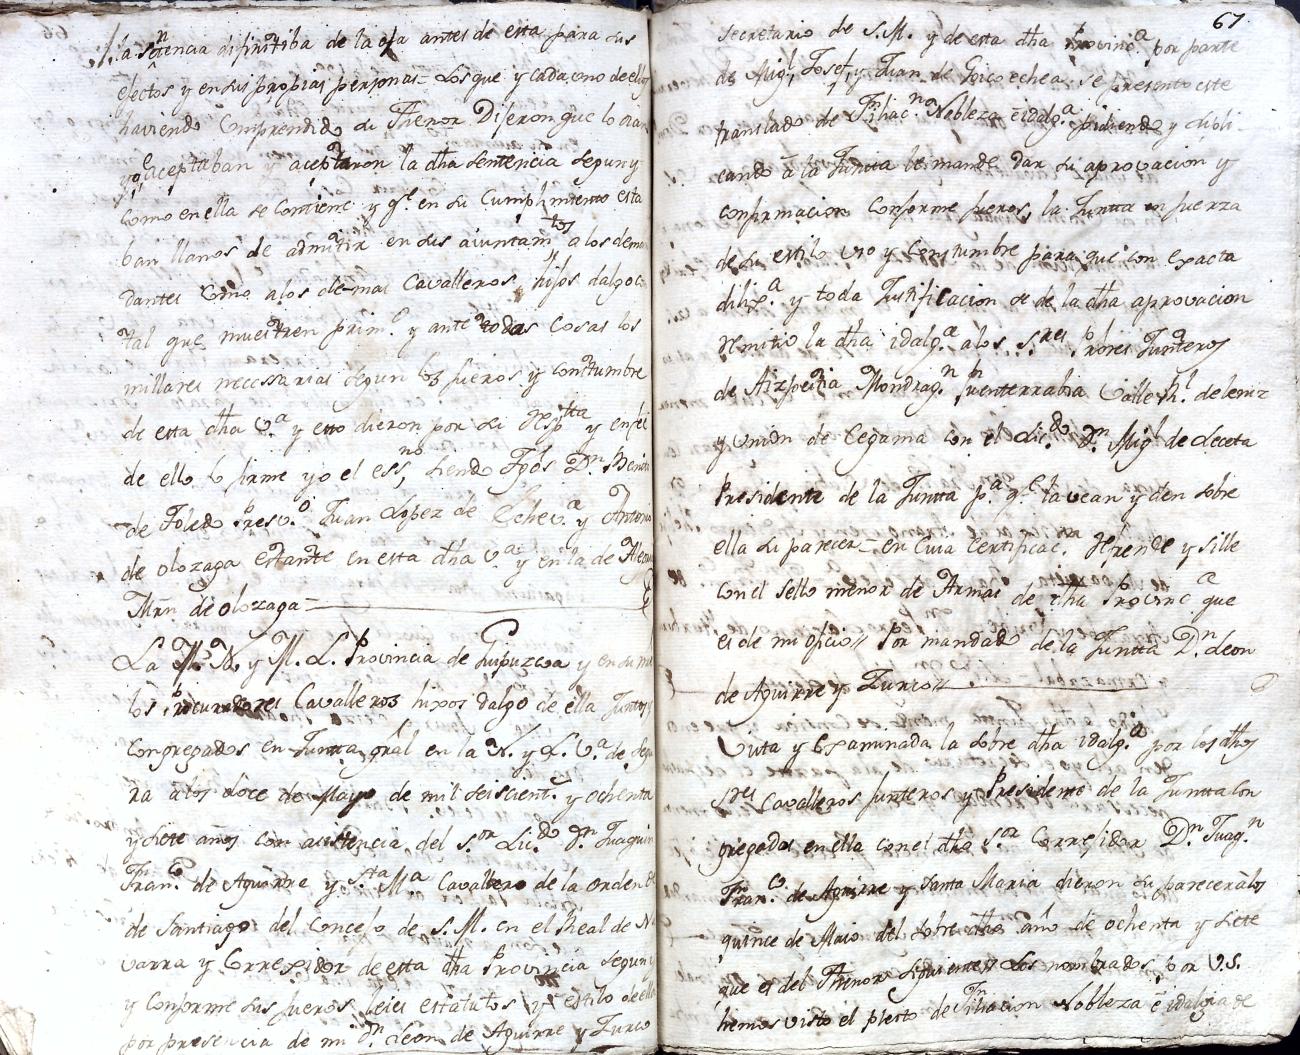 la sentencia difinitiba de la oja antes de esta para sus
efectos y en sus propias personas = Los que y cada uno de ellos
haviendo Comprendido su Thenor Dijeron que lo oian
y aceptaban y aceptaron la dha sentencia segun y
como en ella se Contiene y qe en su Cumplimiento esta
ban llanos de admitir en sus aiuntamtos a los deman
dantes Como a los demas Cavalleros hijos dalgo con
tal que muestren primo y ante todas Cosas los
millares necessarias segun los fueros y Constumbre
de esta dha Va y esto dieron por su Respta y en fee
de ello lo firme yo el essno siendo Tgos Dn Benito
de Toledo Presvo Juan Lopez de Echeva y Antonio
de olozaga estante en esta dha Va y en la de
Mrn de olozaga =
La M. N. y M. L. Provincia de Guipuzcoa y en su nre
los Procuradores Cavalleros hixos dalgo de ella Juntos y
Congregados en Juntta gral en la N. y L. Va de Segu
ra a los doce de Mayo de mil seiscients y ochenta
y siete años con asistencia del Sor Licdo Dn Juaquin
Franco de Aguirre y Sta Ma Cavallero de la orden
de Santiago del Concejo de S. M. en el Real de Na
varra y Correxidor de esta dha Provincia segun y
y Conforme sus fueros leies estatutos y estilo de ella
por presencia de mi Dn Leon de Aguirre y Zurco
67
Secretario de S. M. y de esta dha Provinca por parte
de Migl Josef y Juan de Goicoechea se presento este
translado de Filiacn Nobleza e idalga pidiendo y supli
cando a la Juntta le mande dar su aprovacion y
confirmacion conforme fueros, la Juntta en fuerza
de su estilo uso y Constumbre para que con exacta
dilixa y toda Justificacion se de la dha aprovacion
Remitio la dha idalga a los Sres Prores Junteros
de Aizpeitia Mondragn fuenterrabia Valle Rl de leniz
y Union de Cegama con el Licdo Dn Migl de Leceta
Presidente de la Juntta pa qe la vean y den sobre
ella su parecer = en Cuia Certificac. Refrende y selle
con el sello menor de Armas de dha Provinca que
es de mi oficio // Por mandado de la Juntta Dn Leon
de Aguirre y Zurco //
Vista y Examinada la sobre dha idalga por los dhos
Sres Cavalleros Junteros y Presidente de la Juntta Con
gregados en ella con el dho Sor Corresidor Dn Juaqn
Franco de Aguirre y Santa Maria dieron su parecer a los
quince de Maio del sobre dho año de ochenta y siete
que es del Thenor siguiente // Los nombrados por V. S.
hemos visto el pleito de Filiacion Nobleza e idalgia de